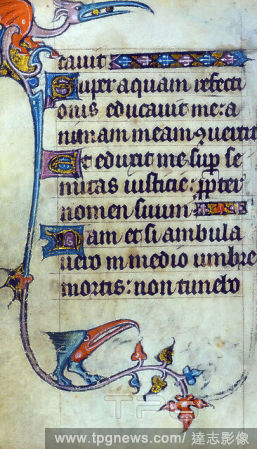 cauit
Super aquam refecti
onis educauit me: a
nimam meam ꝯuertit
Et eduxit me sup se
mitas iusticie: ppter
nomen suum
Nam et si ambula
uero in medio umbre
mortis: non timebo
TPG
www.tpgnews.com/ 達志影像